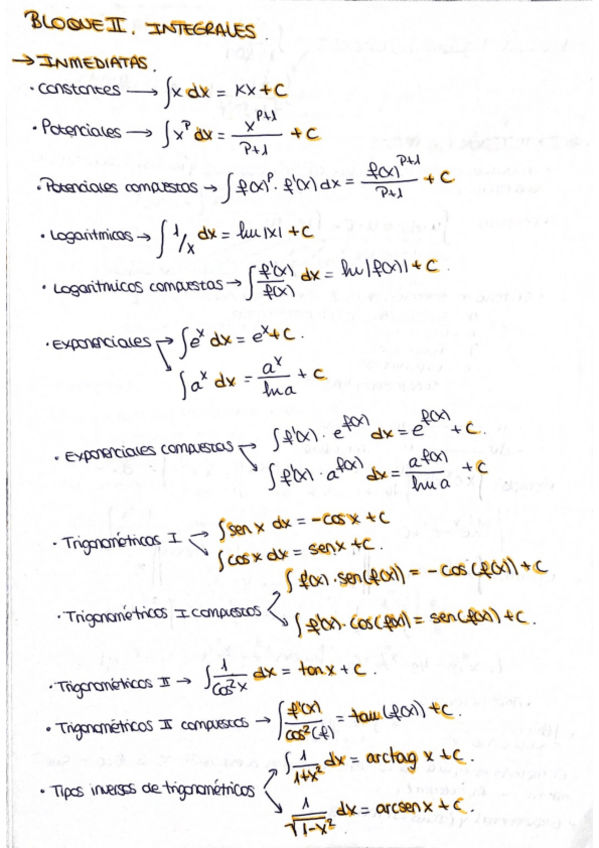 BLOQUE II. INTEGRALES.
→ INMEDIATAS.
· Constantes → ∫x dx = Kx + C
· Potenciales → ∫x^p dx = x^(p+1)/(p+1) + C
· Potenciales compuestas → ∫f(x)^p · f'(x) dx = f(x)^(p+1)/(p+1) + C
· Logarítmicas → ∫1/x dx = ln|x| + C
· Logarítmicas compuestas → ∫f'(x)/f(x) dx = ln|f(x)| + C.
· Exponenciales → ∫e^x dx = e^x + C.
∫a^x dx = a^x/ln a + C
· Exponenciales compuestas → ∫f'(x) · e^f(x) dx = e^f(x) + C.
∫f'(x) · a^f(x) dx = a^f(x)/ln a + C
· Trigonométricos I → ∫sen x dx = -cos x + C
∫cos x dx = sen x + C.
· Trigonométricos I compuestos → ∫f'(x) · sen(f(x)) = -cos(f(x)) + C
∫f'(x) · cos(f(x)) = sen(f(x)) + C.
· Trigonométricos II → ∫1/cos²x dx = tan x + C.
· Trigonométricos II compuestos → ∫f'(x)/cos²(f) = tan(f(x)) + C.
· Tipos inversos de trigonométricos → ∫1/(1+x²) dx = arctag x + C.
1/√(1-x²) dx = arcsen x + C.